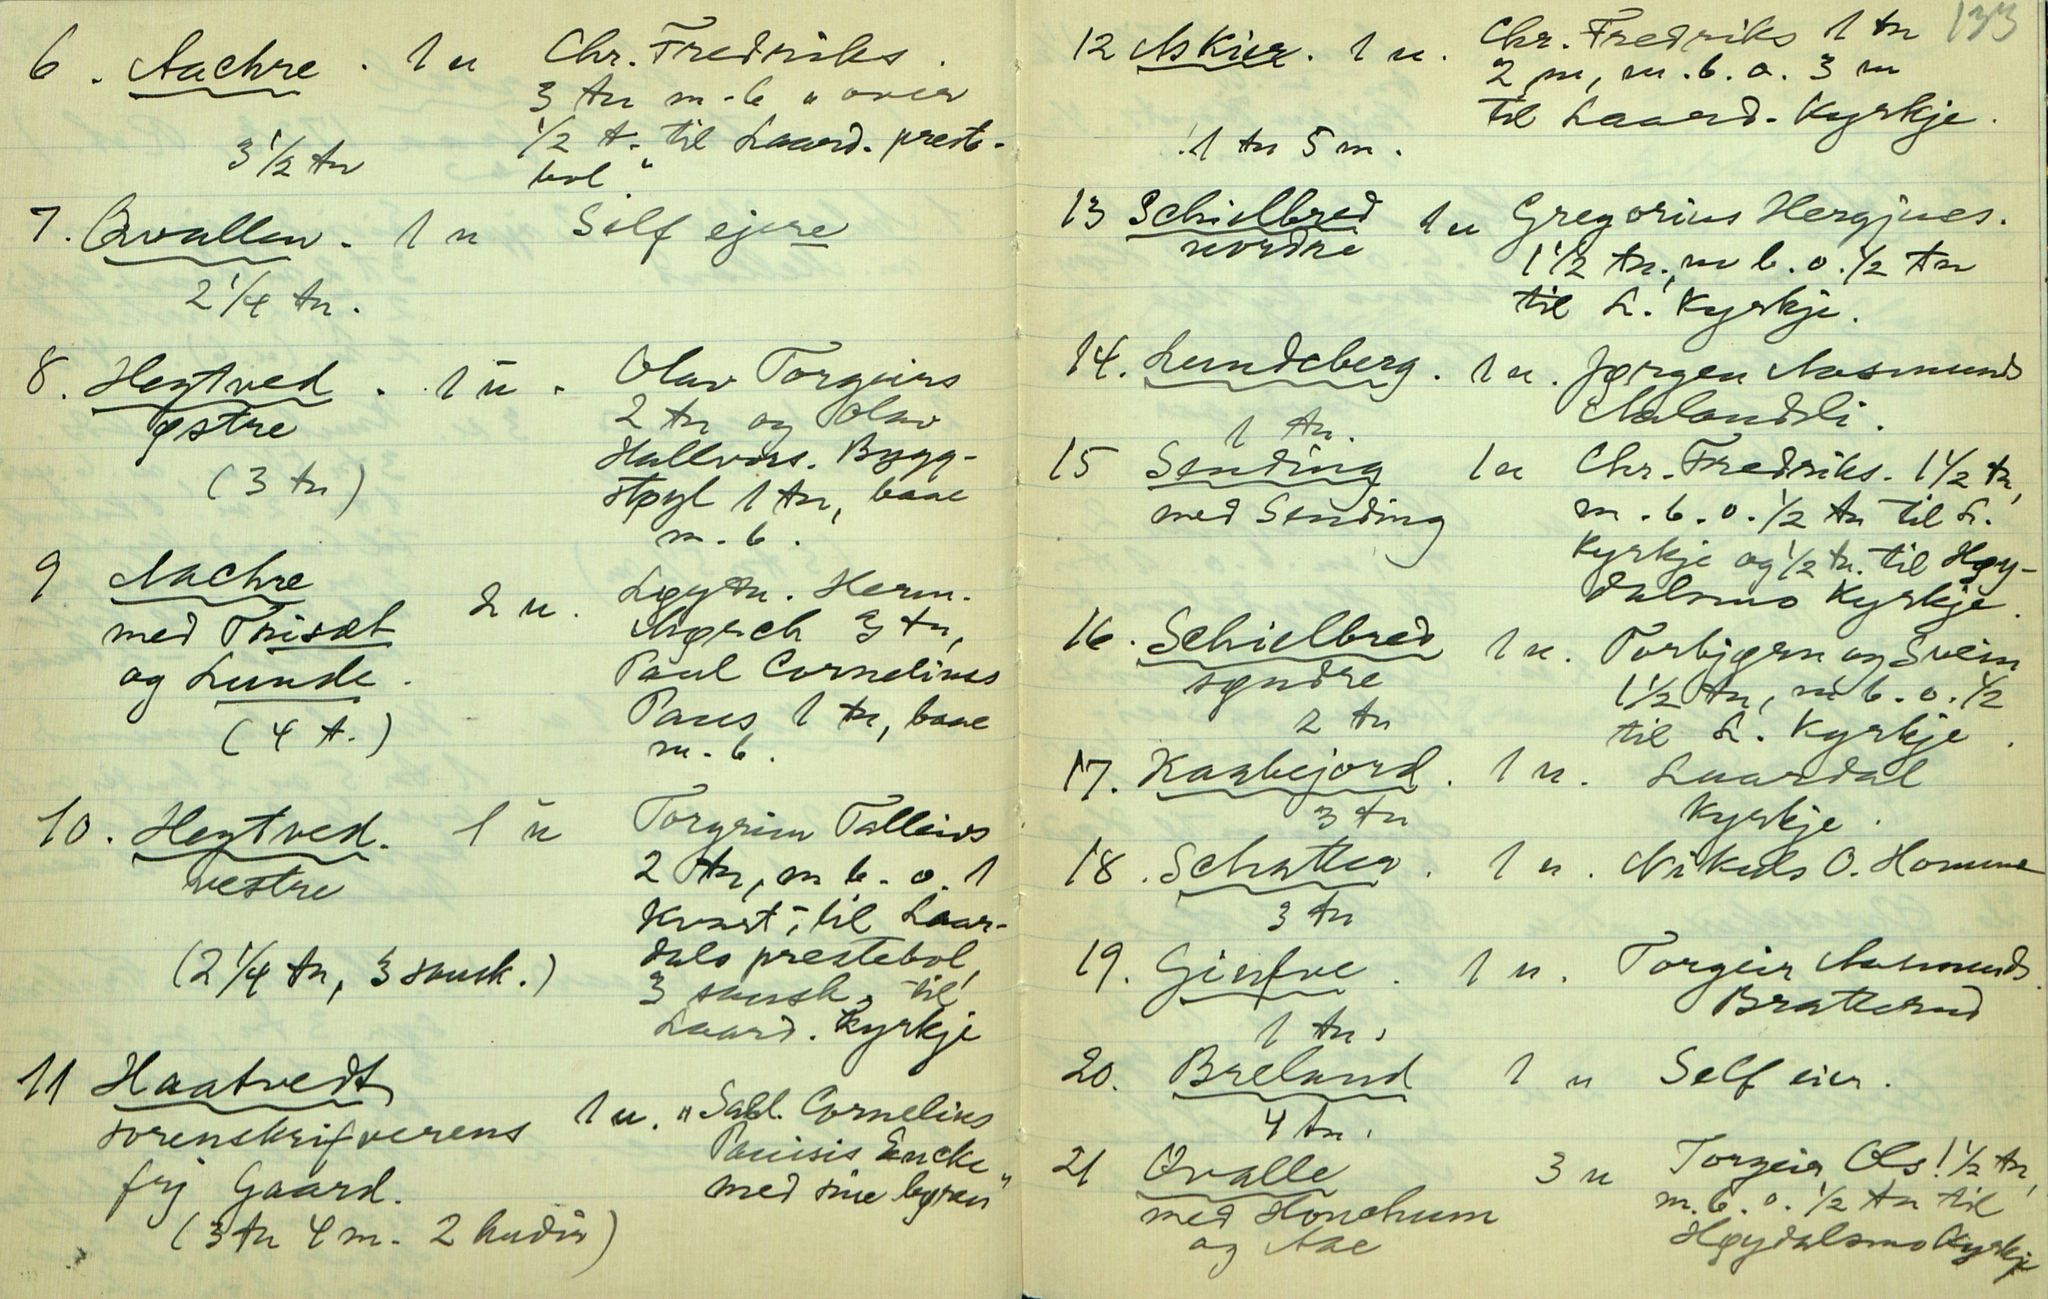 6. Aachre. 1 u Chr. Fredriks.
3 tn m-b "over
1/2 t. til Laard. preste-
3 1/2 tn bol"
7. Qvallen. 1 u Self ejere
2 1/4 tn.
8. Hegtved. 1 u. Olav Torgeirs
østre 2 tn og Olav
Hallvors. Bygg-
(3 tn) støyl 1 tn, baae
m. b.
9 Aachre Løytn. Herm.
med Triset 2 u. 3 tn,
og Lunde. Paul Cornelius
(4 t.) Paus 1 tn, baae
m. b.
10. Hegtved. 1 u Torgrim Talleivs
vestre 2 tn, m b. o. 1
Kvart, til Laar-
(2 1/4 tn, 3 skinsk.) dals prestebol,
3 til
Laard. Kyrkje
11 Haatvedt
sorenskrifverens 1 u. "Sahl. Cornelius
frj Gaard. Pauisis Encke
med sine børen"
(3 tn 4 m. 2 hudir)
133
12 Askier. 1 u. Chr. Fredriks 1 tn
2 m, m. b. o. 3 m
til Laard. Kyrkje.
1 tn 5 m.
13 Schielbred 1 u Gregorius Hergjues.
nordre 1 1/2 tn, m b. o. 1/2 tn
til L. Kyrkje.
14. Lundeberg. 1 u. Jørgen Aasmunds
1 tn. Aalandsli.
15 Sending 1 u Chr. Fredriks. 1 1/2 tn,
med Sending m. b. o. 1/2 tn til L.
Kyrkje og 1/2 tn. til Høy-
dalsmo Kyrkje.
16. Schielbred 1 u. Torbjørn og Svein
søndre 1 1/2 tn, m b. o. 1/2
2 tn til L. Kyrkje.
17. Kaabejord. 1 u. Laardal
3 tn Kyrkje.
18. Schatter. 1 u. Nikuls O. Homme
3 tn
19. Ginfve. 1 u. Torgeir Aasmunds.
Bratterud
1 tn.
20. Breland 1 u Self eier.
4 tn.
21 Qvalle 3 u Torgeir Ols! 1/2 tn,
med Honchum m. b. o. 1/2 tn til
og Aae Høydalsmo Kyrkje